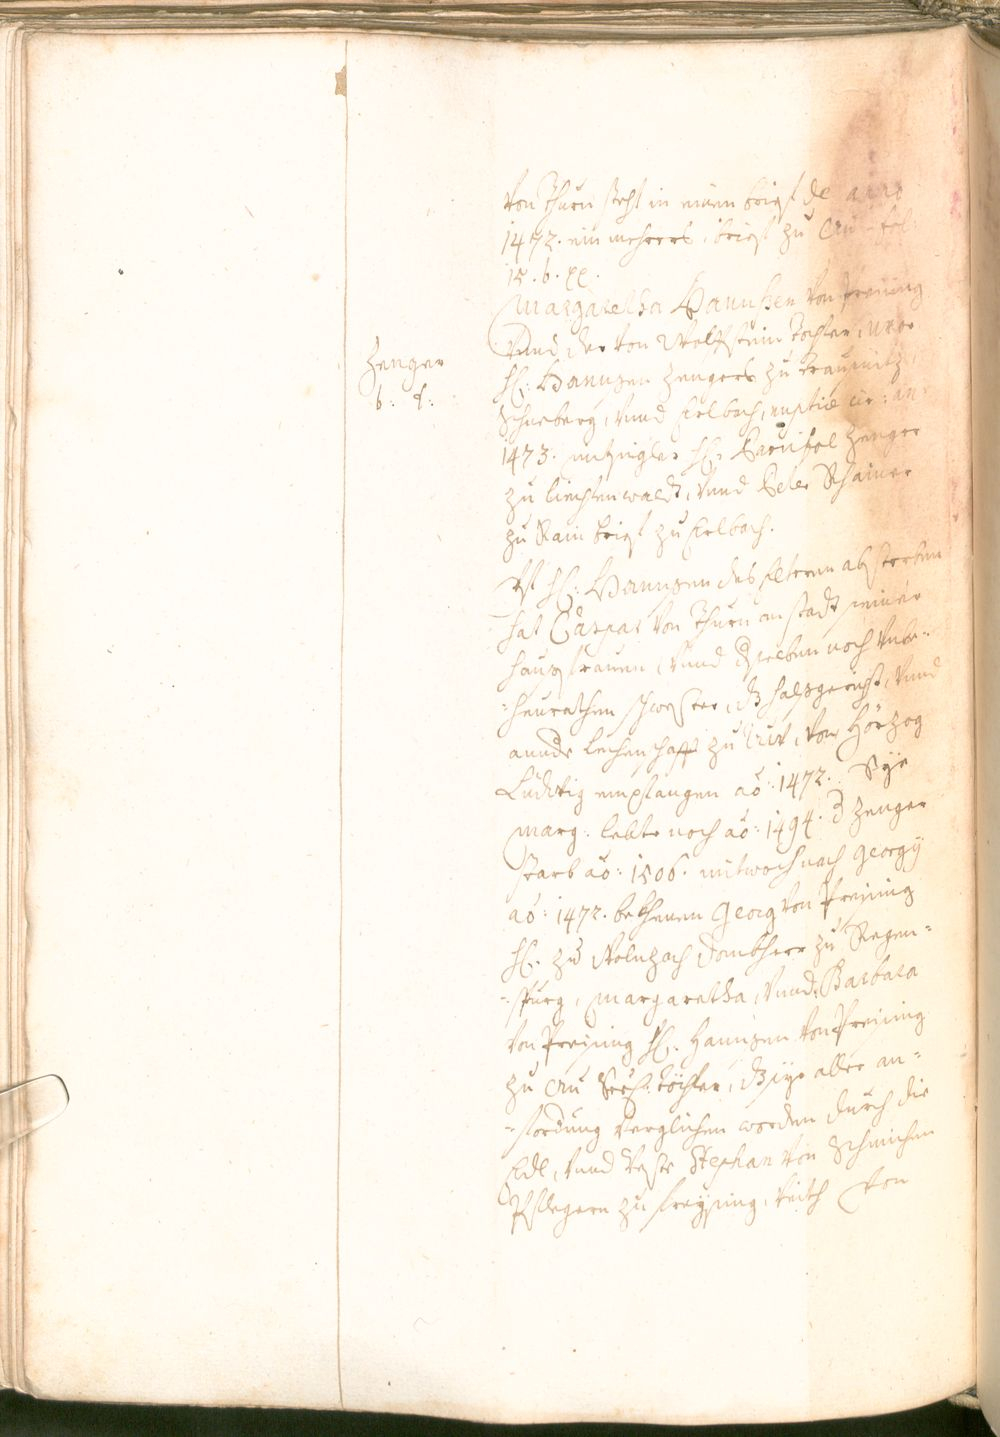 von Thurn steht in einem brief de anno
1472. ein mehrers, brief zu Au fol:
15. b. pp.
Margaretha Hannßen von Preising
vnnd der von Wolfstein Tochter, uxor
H: Hannsen Zengers zu Traußnitz,
Zenger
b: f:
Schneberg, vnnd Erlbach, nuptiae cir: an
1473. mitsigler H: Parcifal Zenger
zu liechtenwaldt, vnnd Peter Rhainer
zu Rain brief zu Erlbach.
Hannsen des Eltern absterben
hat Caspar von Thurn an statt seiner
hausfrauen, vnnd derselben noch vnver-
-heurathen schwester, dz halsgericht, vnnd
annde lechenschafft zu Au, von Hörzog
Ludwig empfangen aō: 1472. Sye
Marg: lebte noch aō: 1494. d Zenger
starb aō: 1506. mitwoch nach Georgÿ
aō: 1472. bekhennen Georg von Preising
H: zu Wolnzach Dombherr zu Regen-
-spurg, Margaretha, vnnd Barbara
von Preÿsing H: Hannsen von Preising
zu Au Seel: töchter, dz sye aller an-
-fordung verglichen worden durch die
Edl, vnnd Veste Stephan von Schmichen
Pflegern zu freÿsing, Veith von